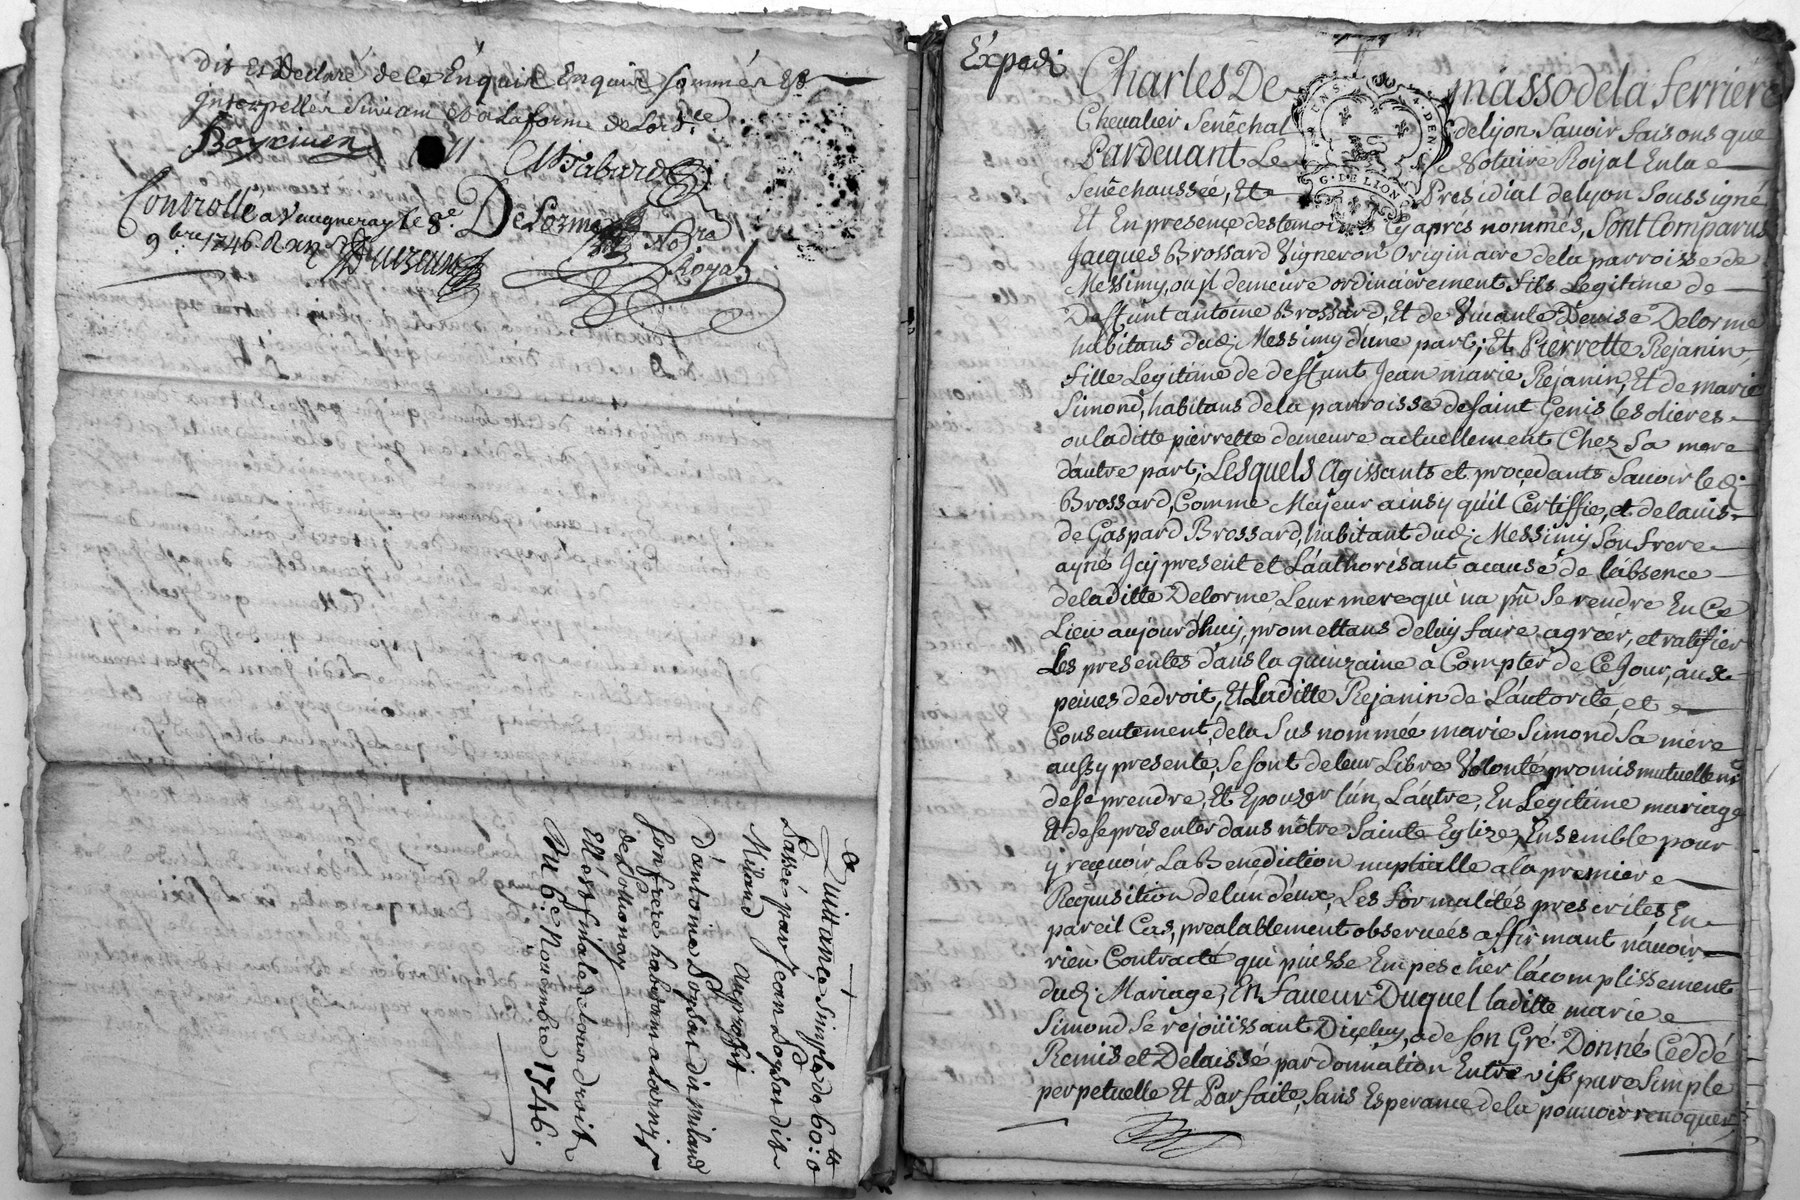 dit Et Declaré de ce Enquis Enquis Sommés Et
Interpellés Suivant Et a la forme de Lord.ce
Boyrivien
M Fabard
Controlle a Vaugneray le 8e.
9bre 1746. R
Delorme
No.re
Royal
Quittance Simple de 60:0
Passée par Jean
Miland au proffit
d'antoine dit miland
son frere habitant a
de Pollionay
Elle est finale de tour de droit
Du 6e. Novembre 1746.
Expedi
Charles De masso de la ferriere
Chevalier Senêchal de lyon Savoir faisons que
Pardevant Le Notaire Royal En la
Senêchaussée, Et Presidial de lyon Soussigné
GENS
DEN
G. DE LION
Et En presence des temoins Cy aprés nommés, Sont Comparus
Jacques Brossard Vigneron Originaire de la parroisse de
Messimy, ou jl demeure ordinairement fils Legitime de
Deffunt antoine Brossard, Et de Vivante Denise Delorme
habitans dud: Messimy d'une part; Et Pierrette Rejanin
fille Legitime de deffunt Jean marie Rejanin, Et de marie
Simond, habitans de la parroisse de Saint Genis les olieres
ou laditte pierrette demeure actuellement Chez Sa mere
d'autre part; Lesquels Agissants et procedants Savoir led:
Brossard, Comme Majeur ainsy qu'il Certiffie, et de l'avis
de Gaspard Brossard, habitant dud: Messimy Son frere
ayné Jcy present et L'authorisant a cause de l'absence
de laditte Delorme Leur mere qui n'a pû Se rendre En Ce
Lieu aujourd'huy, promettans de luy faire agréer, et ratifier
Les presentes dans la quinzaine a Compter de Ce Jour, aux
peines de droit, Et Laditte Rejanin de L'autorité, et
Consentement, de la Sus nommée marie Simond Sa mere
aussy presente, Se sont de leur Libre Volonté promis mutuellemt
de se prendre, Et Epouser l'un, L'autre, En Legitime mariage
Et de se presenter dans nôtre Sainte Eglize, Ensemble pour
y recevoir La Benediction nuptialle a la premiere
Requisition de l'un d'eux, Les formalités prescrites, En
pareil Cas, prealablement observées affirmant n'avoir
rien Contracté qui puisse Empescher l'acomplissement
dud: Mariage; En faveur Duquel laditte marie
Simond Se rejoüissant Diceluy, a de son Gré Donné Ceddé
Remis et Delaissé par donnation Entre vifs pure Simple
perpetuelle Et Parfaite, Sans Esperance de la pouvoir revoquer